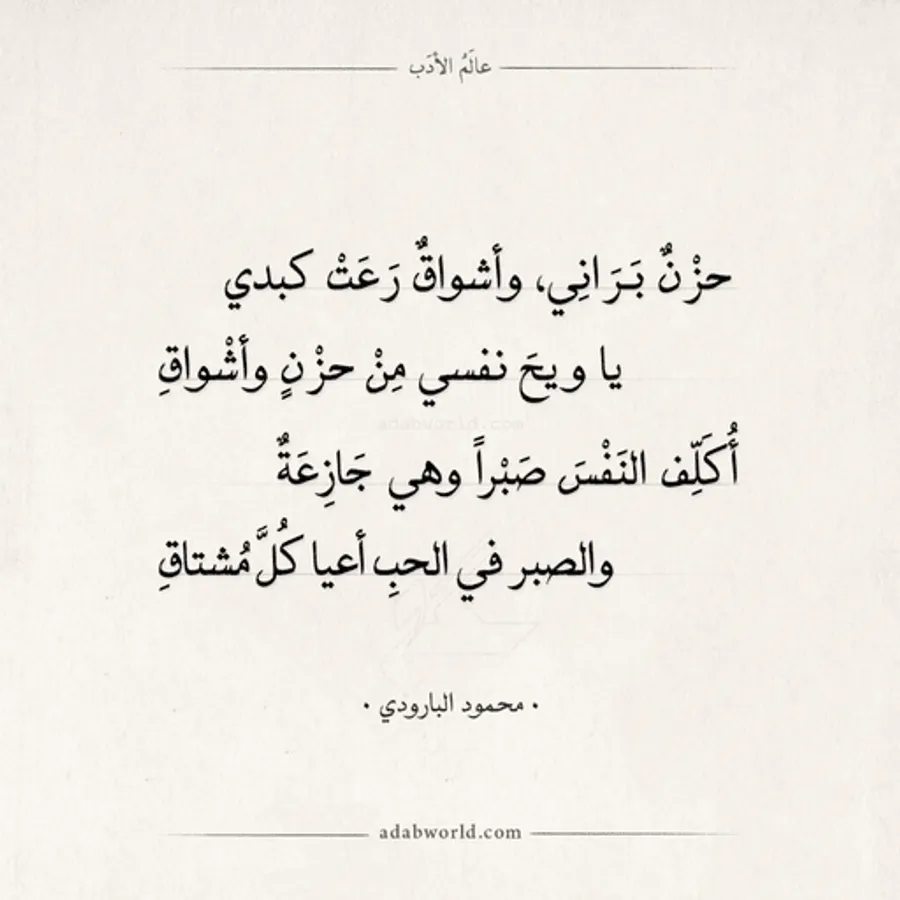 عالَمُ الأدَب
حزْنٌ بَرَانِي، وأشواقٌ رَعَتْ كبدي
يا ويحَ نفسي مِنْ حزْنٍ وأشْواقِ
adabworld.com
أُكَلِّف النَفْسَ صَبْراً وهي جَازِعَةٌ
والصبر في الحبِ أعيا كُلَّ مُشتاقِ
• محمود البارودي •
adabworld.com